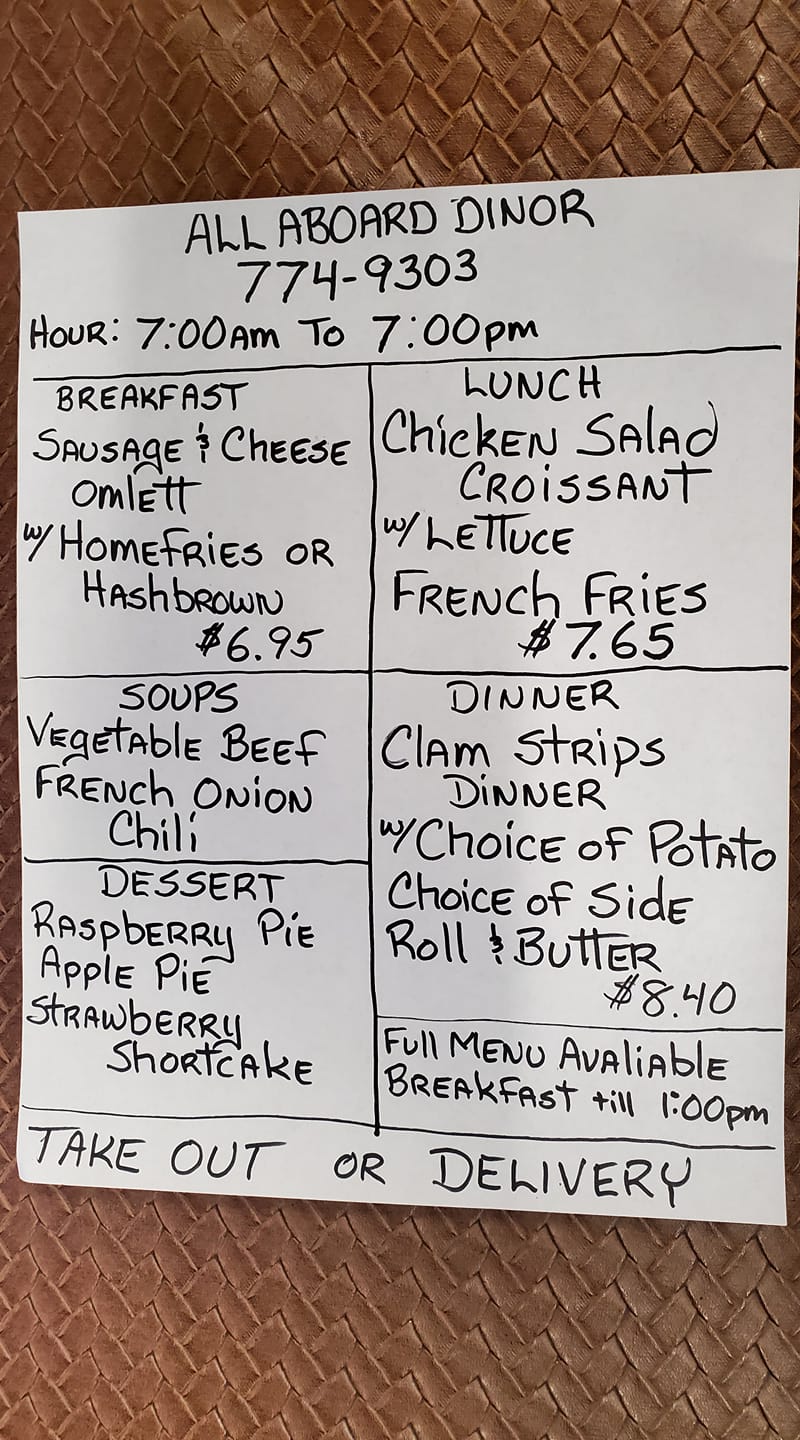 ALL ABOARD DINOR
774-9303
HOUR: 7:00AM TO 7:00PM
BREAKFAST
SAUSAGE & CHEESE
OMLETT
W/ HOMEFRIES OR
HASHBROWN
$6.95
SOUPS
VEGETABLE BEEF
FRENCH ONION
Chili
DESSERT
RASPBERRY PIE
APPLE PIE
STRAWBERRY
SHORTCAKE
LUNCH
Chicken Salad
CROISSANT
W/ LETTUCE
FRENCH FRIES
$7.65
DINNER
Clam Strips
DINNER
W/ Choice of Potato
Choice of Side
Roll & BUTTER
$8.40
Full MENU Avaliable
BREAKfast till 1:00pm
TAKE OUT OR DELIVERY